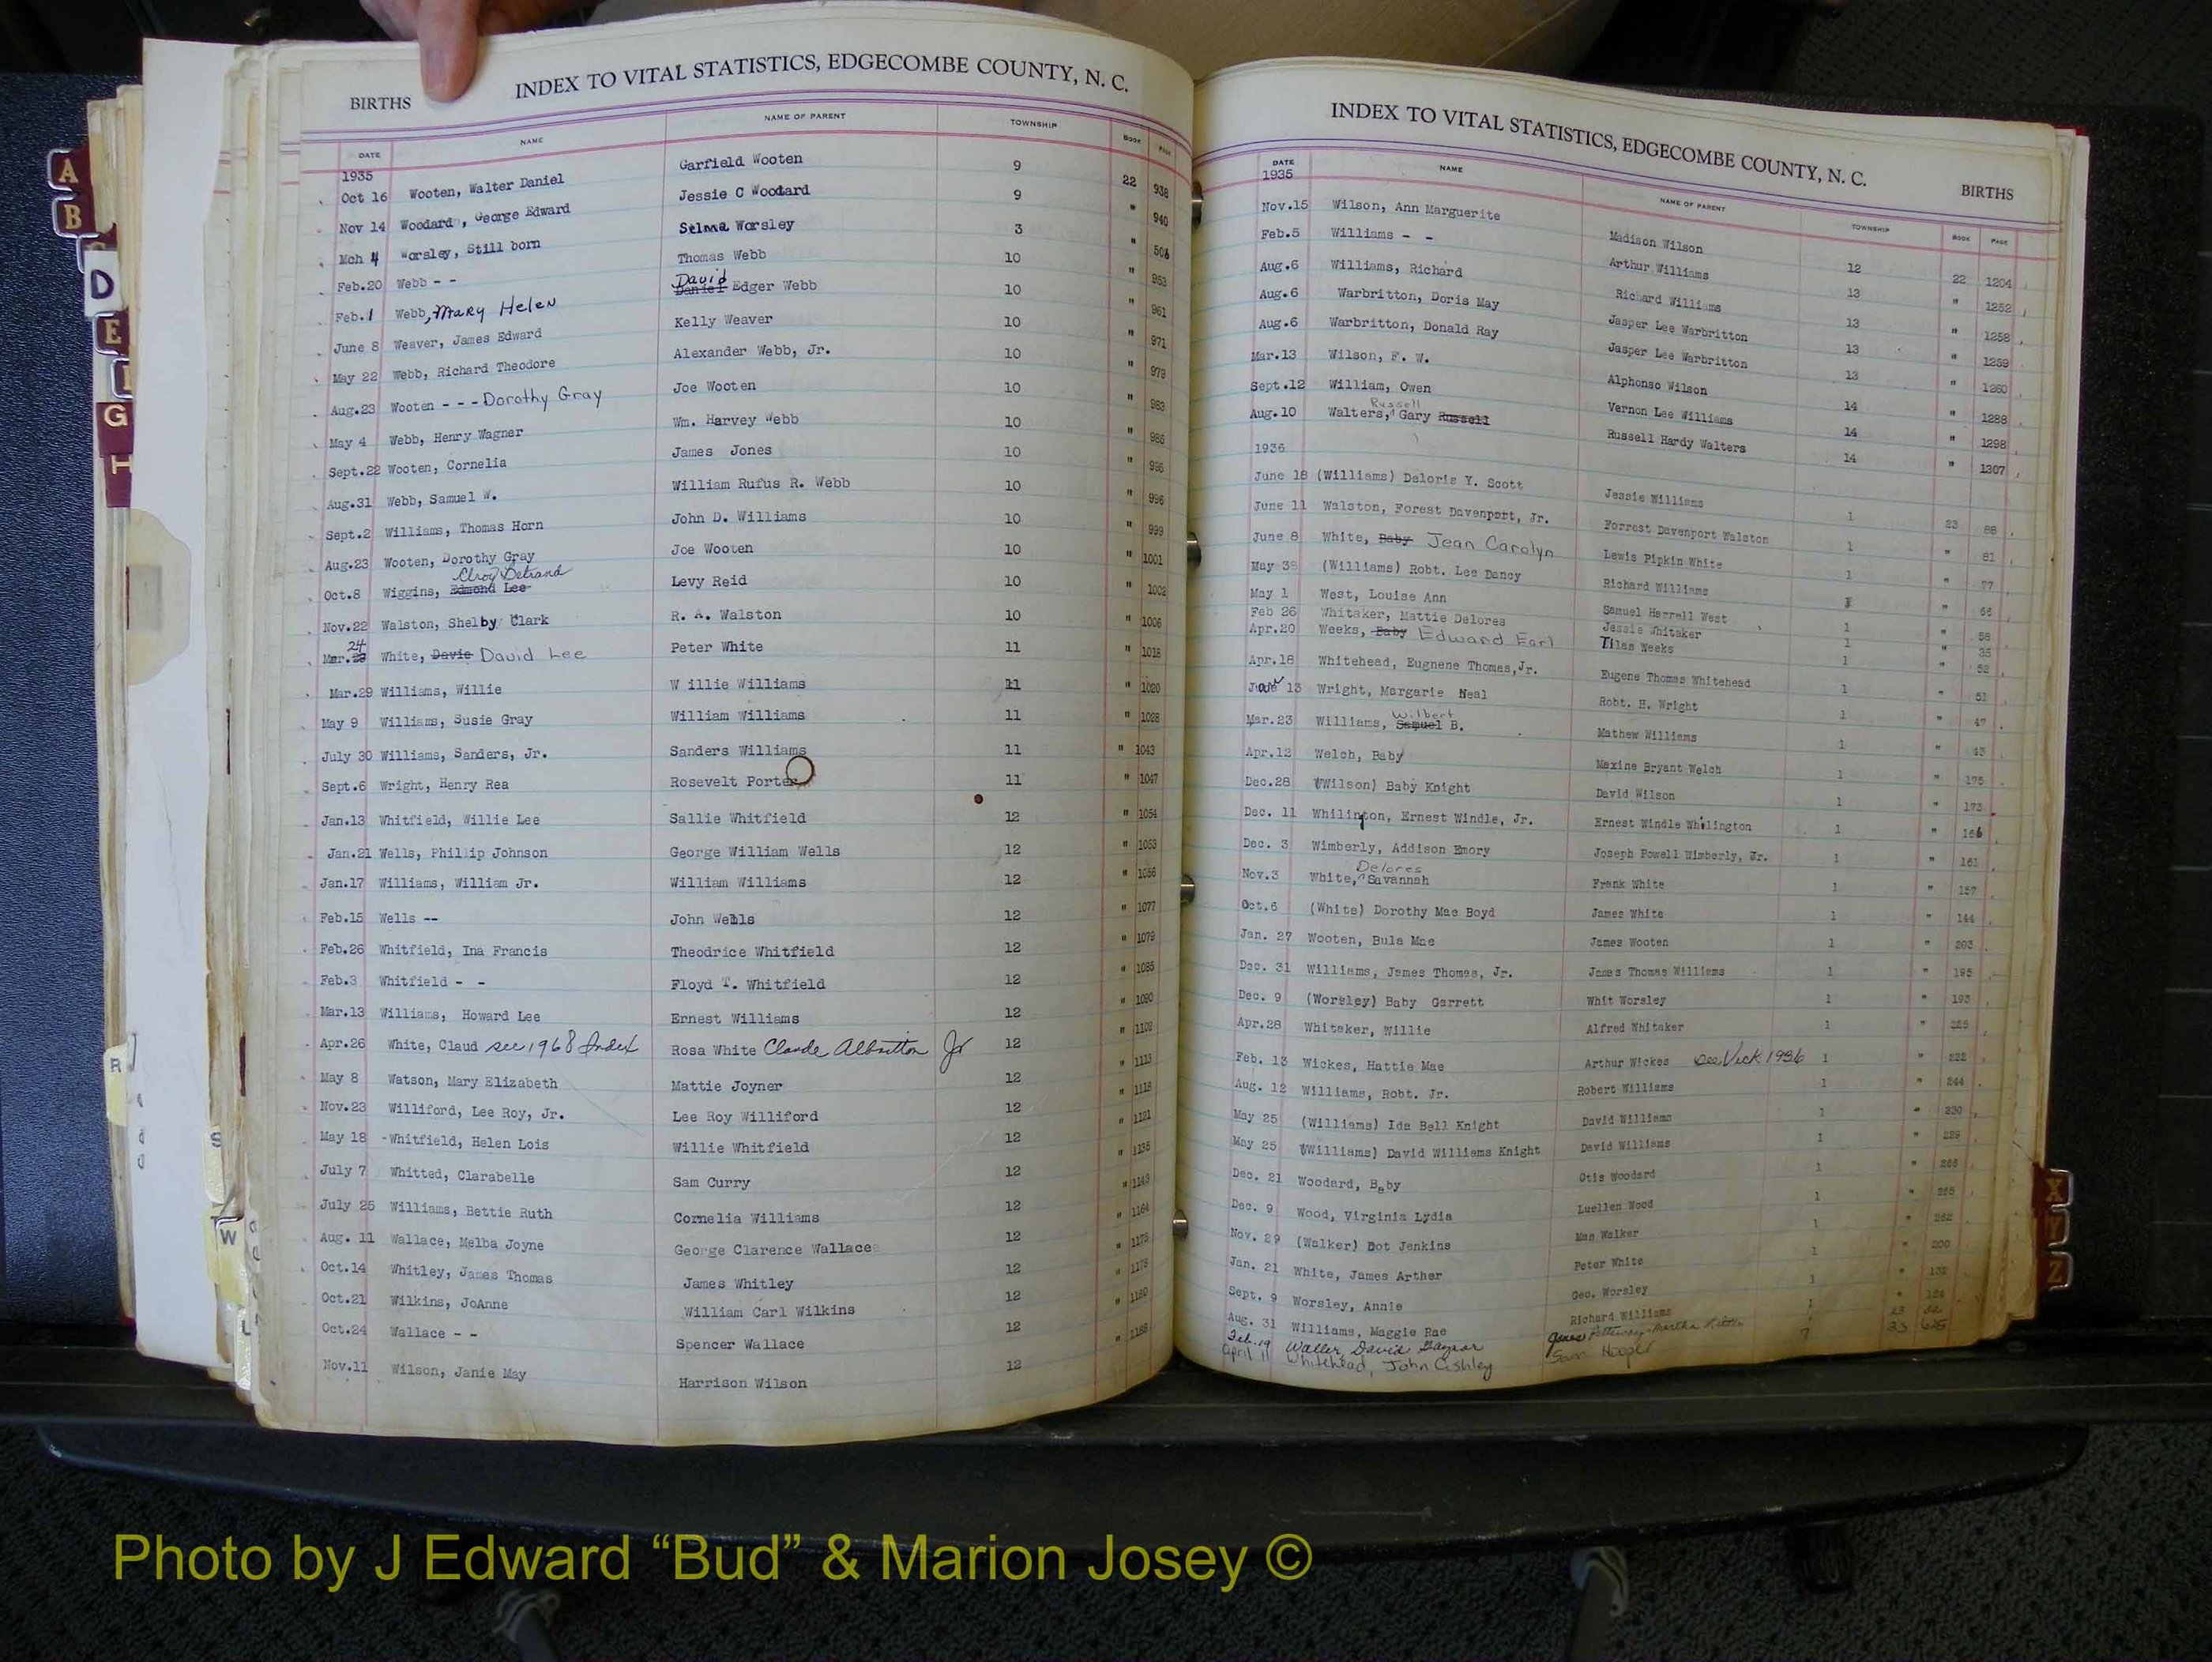 INDEX TO VITAL STATISTICS, EDGECOMBE COUNTY, N. C.
BIRTHS
DATE NAME NAME OF PARENT TOWNSHIP BOOK PAGE
1935
Oct 16 Wooten, Walter Daniel Garfield Wooten 9 22 938
Nov 14 Woodard, George Edward Jessie C Woodard 9 " 940
Mch 4 Worsley, Still born Selma Worsley 3 " 506
Feb.20 Webb - - Thomas Webb 10 " 953
Feb.1 Webb, Mary Helen Daniel David Edger Webb 10 " 961
June 8 Weaver, James Edward Kelly Weaver 10 " 971
May 22 Webb, Richard Theodore Alexander Webb, Jr. 10 " 979
Aug.23 Wooten - - - Dorothy Gray Joe Wooten 10 " 983
May 4 Webb, Henry Wagner Wm. Harvey Webb 10 " 985
Sept.22 Wooten, Cornelia James Jones 10 " 996
Aug.31 Webb, Samuel W. William Rufus R. Webb 10 " 998
Sept.2 Williams, Thomas Horn John D. Williams 10 " 999
Aug.23 Wooten, Dorothy Gray Joe Wooten 10 " 1001
Oct.8 Wiggins, Edmond Lee Elroy Detrand Levy Reid 10 " 1002
Nov.22 Walston, Shelby Clark R. A. Walston 10 " 1006
Mar. 24 White, Davie David Lee Peter White 11 " 1018
Mar.29 Williams, Willie W illie Williams 11 " 1020
May 9 Williams, Susie Gray William Williams 11 " 1028
July 30 Williams, Sanders, Jr. Sanders Williams 11 " 1043
Sept.6 Wright, Henry Rea Rosevelt Porter 11 " 1047
Jan.13 Whitfield, Willie Lee Sallie Whitfield 12 " 1054
Jan.21 Wells, Phillip Johnson George William Wells 12 " 1053
Jan.17 Williams, William Jr. William Williams 12 " 1056
Feb.15 Wells -- John Wells 12 " 1077
Feb.26 Whitfield, Ina Francis Theodrice Whitfield 12 " 1079
Feb.3 Whitfield - - Floyd T. Whitfield 12 " 1085
Mar.13 Williams, Howard Lee Ernest Williams 12 " 1090
Apr.26 White, Claud see 1968 Index Rosa White Claude Albritton Jr 12 " 1102
May 8 Watson, Mary Elizabeth Mattie Joyner 12 " 1113
Nov.23 Williford, Lee Roy, Jr. Lee Roy Williford 12 " 1118
May 18 -Whitfield, Helen Lois Willie Whitfield 12 " 1121
July 7 Whitted, Clarabelle Sam Curry 12 " 1135
July 25 Williams, Bettie Ruth Cornelia Williams 12 " 1149
Aug. 11 Wallace, Melba Joyne George Clarence Wallace 12 " 1164
Oct.14 Whitley, James Thomas James Whitley 12 " 1175
Oct.21 Wilkins, JoAnne William Carl Wilkins 12 " 1178
Oct.24 Wallace - - Spencer Wallace 12 " 1180
Nov.11 Wilson, Janie May Harrison Wilson 12 " 1188
INDEX TO VITAL STATISTICS, EDGECOMBE COUNTY, N. C.
BIRTHS
DATE NAME NAME OF PARENT TOWNSHIP BOOK PAGE
1935
Nov.15 Wilson, Ann Marguerite Madison Wilson 12 22 1204
Feb.5 Williams - - Arthur Williams 13 " 1252
Aug.6 Williams, Richard Richard Williams 13 " 1258
Aug.6 Warbritton, Doris May Jasper Lee Warbritton 13 " 1259
Aug.6 Warbritton, Donald Ray Jasper Lee Warbritton 13 " 1260
Mar.13 Wilson, F. W. Alphonso Wilson 14 " 1288
Sept.12 William, Owen Vernon Lee Williams 14 " 1298
Aug.10 Walters, Russell Gary Russell Russell Hardy Walters 14 " 1307
1936
June 18 (Williams) Deloris Y. Scott Jessie Williams 1 23 88
June 11 Walston, Forest Davenport, Jr. Forrest Davenport Walston 1 " 81
June 8 White, Baby Jean Carolyn Lewis Pipkin White 1 " 77
May (Williams) Robt. Lee Dancy Richard Williams 1 " 66
May 1 West, Louise Ann Samuel Harrell West 1 " 58
Feb 26 Whitaker, Mattie Delores Jessie Whitaker 1 " 35
Apr.20 Weeks, Baby Edward Earl Tilas Weeks 1 " 52
Apr.18 Whitehead, Eugnene Thomas, Jr. Eugene Thomas Whitehead 1 " 51
13 Wright, Margarie Neal Robt. H. Wright 1 " 47
Mar.23 Williams, Samuel Wilbert B. Mathew Williams 1 " 43
Apr.12 Welch, Baby Maxine Bryant Welch 1 " 175
Dec.28 (Wilson) Baby Knight David Wilson 1 " 173
Dec. 11 Whilinton, Ernest Windle, Jr. Ernest Windle Whilington 1 " 166
Dec. 3 Wimberly, Addison Emory Joseph Powell Wimberly, Jr. 1 " 161
Nov.3 White, Delores Savannah Frank White 1 " 157
Oct.6 (White) Dorothy Mae Boyd James White 1 " 144
Jan. 27 Wooten, Bula Mae James Wooten 1 " 203
Dec. 31 Williams, James Thomas, Jr. James Thomas Williams 1 " 195
Dec. 9 (Worsley) Baby Garrett Whit Worsley 1 " 193
Apr.28 Whitaker, Willie Alfred Whitaker 1 " 225
Feb. 13 Wickes, Hattie Mae Arthur Wickes see Vick 1936 1 " 222
Aug. 12 Williams, Robt. Jr. Robert Williams 1 " 244
May 25 (Williams) Ida Bell Knight David Williams 1 " 230
May 25 (Williams) David Williams Knight David Williams 1 " 229
Dec. 21 Woodard, Baby Otis Woodard 1 "
Dec. 9 Wood, Virginia Lydia Luellen Wood 1 " 265
Nov. 29 (Walker) Dot Jenkins Man Walker 1 " 262
Jan. 21 White, James Arther Peter White 1 " 200
Sept. 9 Worsley, Annie Geo. Worsley 1 " 132
Aug. 31 Williams, Maggie Rae Richard Williams 1 " 124
Feb. 19 Waller, David
April 11 Whitehead, John Ashley Sam Hooper 7 23 625
A
B
D
E
G
H
R
S
W
X
Y
Z
Photo by J Edward “Bud” & Marion Josey ©